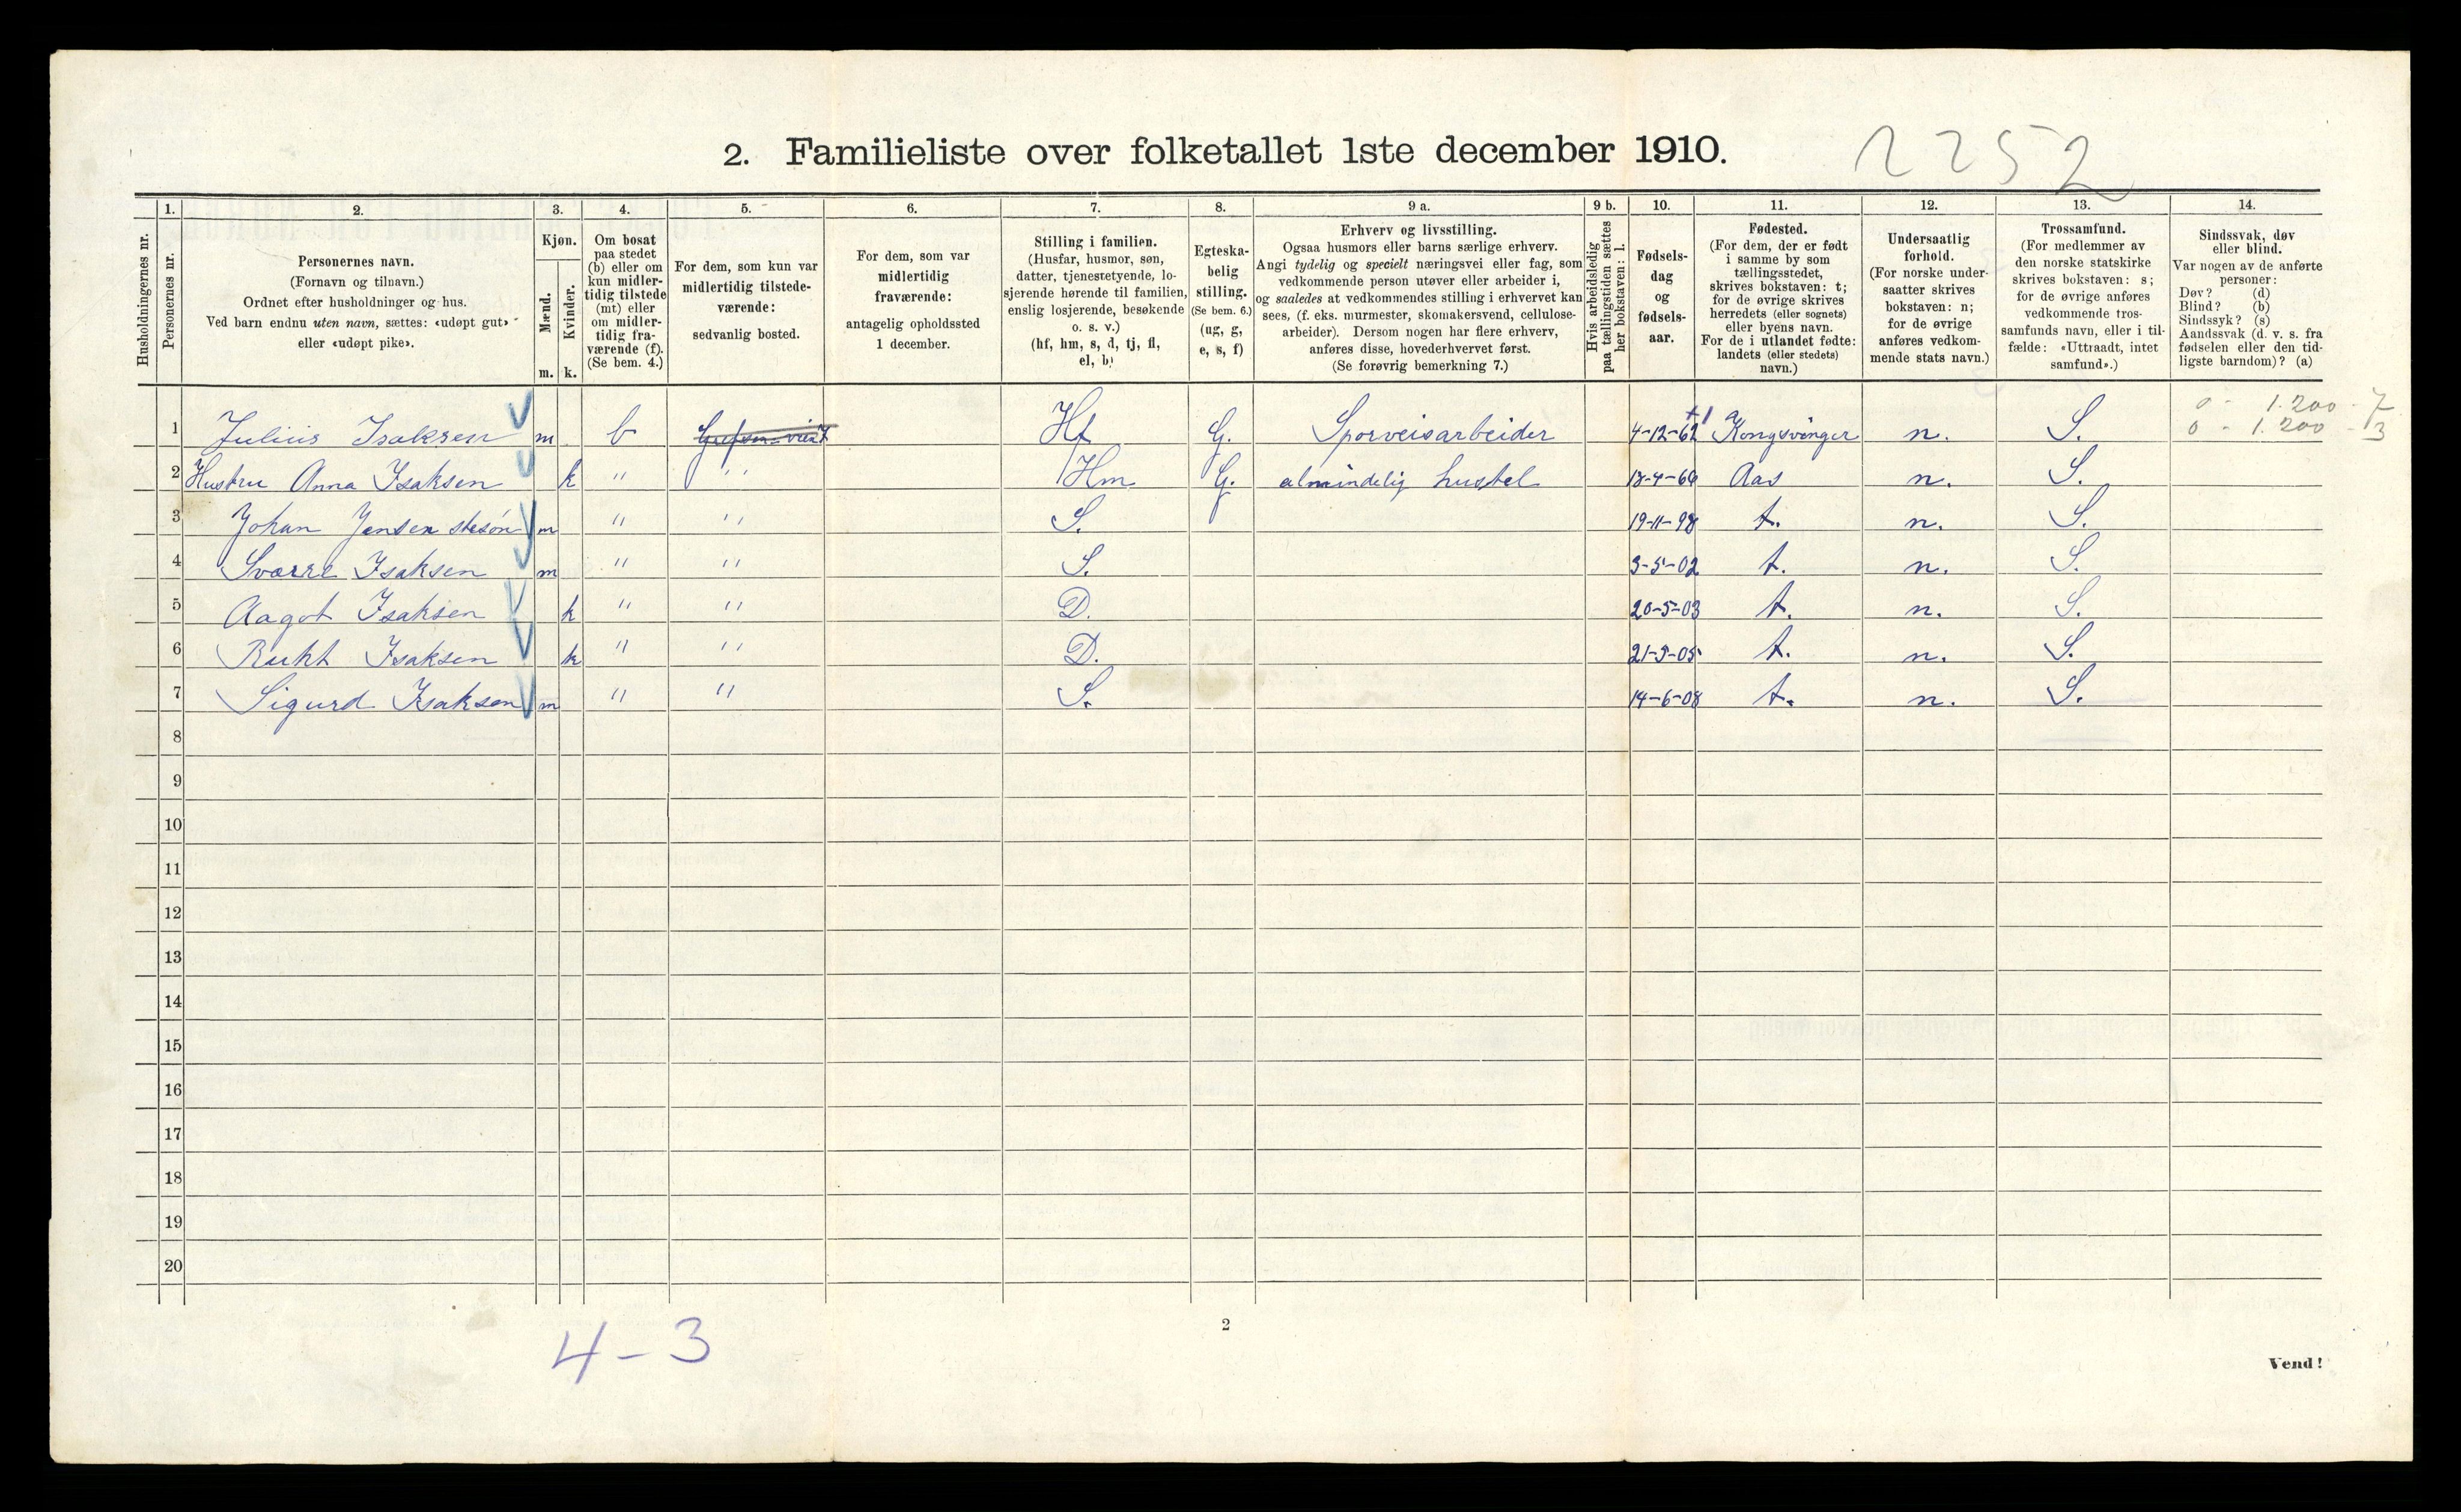 2. Familieliste over folketallet 1ste december 1910.
2252
1. 2. 3. 4. 5. 6. 7. 8. 9 a. 9 b. 10. 11. 12. 13. 14.
Husholdningernes nr.
Personernes nr.
Personernes navn.
(Fornavn og tilnavn.)
Ordnet efter husholdninger og hus.
Ved barn endnu uten navn, sættes: «udøpt gut»
eller «udøpt pike».
Kjøn.
Mænd.
Kvinder.
m. k.
Om bosat
paa stedet
(b) eller om
kun midler-
tidig tilstede
(mt) eller
om midler-
tidig fra-
værende (f).
(Se bem. 4.)
For dem, som kun var
midlertidig tilstede-
værende:
sedvanlig bosted.
For dem, som var
midlertidig
fraværende:
antagelig opholdssted
1 december.
Stilling i familien.
(Husfar, husmor, søn,
datter, tjenestetyende, lo-
sjerende hørende til familien,
enslig losjerende, besøkende
o. s. v.)
(hf, hm, s, d, tj, fl,
el, b)
Egteska-
belig
stilling.
(Se bem. 6.)
(ug, g,
e, s, f)
Erhverv og livsstilling.
Ogsaa husmors eller barns særlige erhverv.
Angi tydelig og specielt næringsvei eller fag, som
vedkommende person utøver eller arbeider i,
og saaledes at vedkommendes stilling i erhvervet kan
sees, (f. eks. murmester, skomakersvend, cellulose-
arbeider). Dersom nogen har flere erhverv,
anføres disse, hovederhvervet først.
(Se forøvrig bemerkning 7.)
Hvis arbeidsledig
paa tællingstiden sættes
her bokstaven: l.
Fødsels-
dag
og
fødsels-
aar.
Fødested.
(For dem, der er født
i samme by som
tællingsstedet,
skrives bokstaven: t;
for de øvrige skrives
herredets (eller sognets)
eller byens navn.
For de i utlandet fødte:
landets (eller stedets)
navn.)
Undersaatlig
forhold.
(For norske under-
saatter skrives
bokstaven: n;
for de øvrige
anføres vedkom-
mende stats navn.)
Trossamfund.
(For medlemmer av
den norske statskirke
skrives bokstaven: s;
for de øvrige anføres
vedkommende tros-
samfunds navn, eller i til-
fælde: «Uttraadt, intet
samfund».)
Sindssvak, døv
eller blind.
Var nogen av de anførte
personer:
Døv? (d)
Blind? (b)
Sindssyk? (s)
Aandssvak (d. v. s. fra
fødselen eller den tid-
ligste barndom)? (a)
0 - 1.200 - 7
0 - 1.200 - 3
1 Julius Isaksen m b Hf G. Sporveisarbeider 4-12-62 Kongsvinger n. S.
2 Hustru Anna Isaksen k " " Hm G. almindelig hustel Aas n. S.
3 Johan Jensen stesön m " " S. 19-11-98 t. n. S.
4 Sværre Isaksen m " " S. 3-5-02 t. n. S.
5 Aagot Isaksen k " " D. 20-5-03 t. n. S.
6 Rukt Isaksen k " " D. 21-5-05 t. n. S.
7 Sigurd Isaksen m " " S. 14-6-08 t. n. S.
8
9
10
11
12
13
14
15
16
17
18
19
20
4-3
2
Vend!